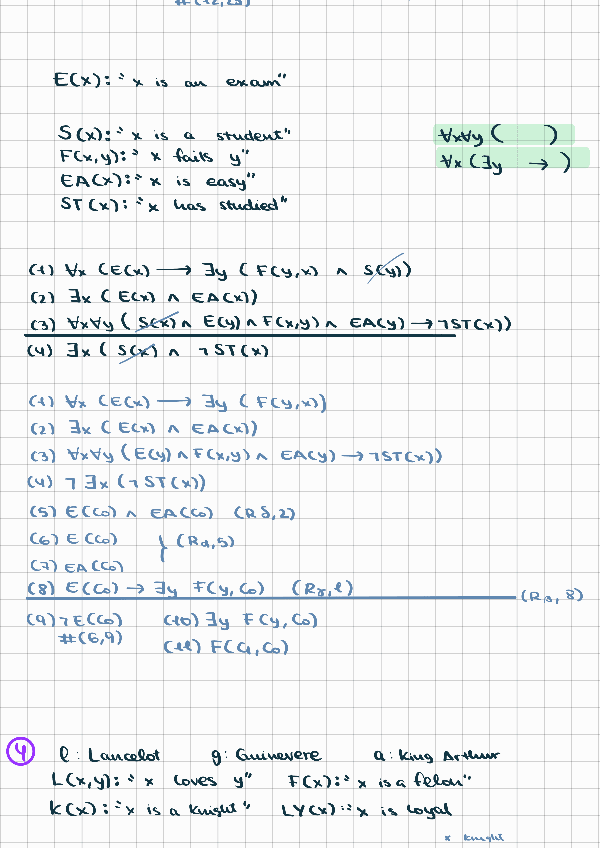 #(12,23)
E(x): "x is an exam"
S(x): "x is a student"
F(x,y): "x fails y"
EA(x): "x is easy"
ST(x): "x has studied"
∀x∀y (      )
∀x (∃y → )
(1) ∀x (E(x) → ∃y (F(y,x) ∧ S(y))
(2) ∃x (E(x) ∧ EA(x))
(3) ∀x∀y (S(x) ∧ E(y) ∧ F(x,y) ∧ EA(y) → ¬ST(x))
(4) ∃x (S(x) ∧ ¬ST(x)
(1) ∀x (E(x) → ∃y (F(y,x))
(2) ∃x (E(x) ∧ EA(x))
(3) ∀x∀y (E(y) ∧ F(x,y) ∧ EA(y) → ¬ST(x))
(4) ¬∃x (¬ST(x))
(5) E(c₀) ∧ EA(c₀) (Rδ,2)
(6) E(c₀) } (Rα,5)
(7) EA(c₀)
(8) E(c₀) → ∃y F(y,c₀) (Rγ,1)
(Rβ,8)
(9) ¬E(c₀) (10) ∃y F(y,c₀)
#(6,9) (11) F(c₁,c₀)
4 l: Lancelot g: Guinevere a: King Arthur
L(x,y): "x loves y" F(x): "x is a felon"
K(x): "x is a knight" LY(x): "x is loyal
x knight